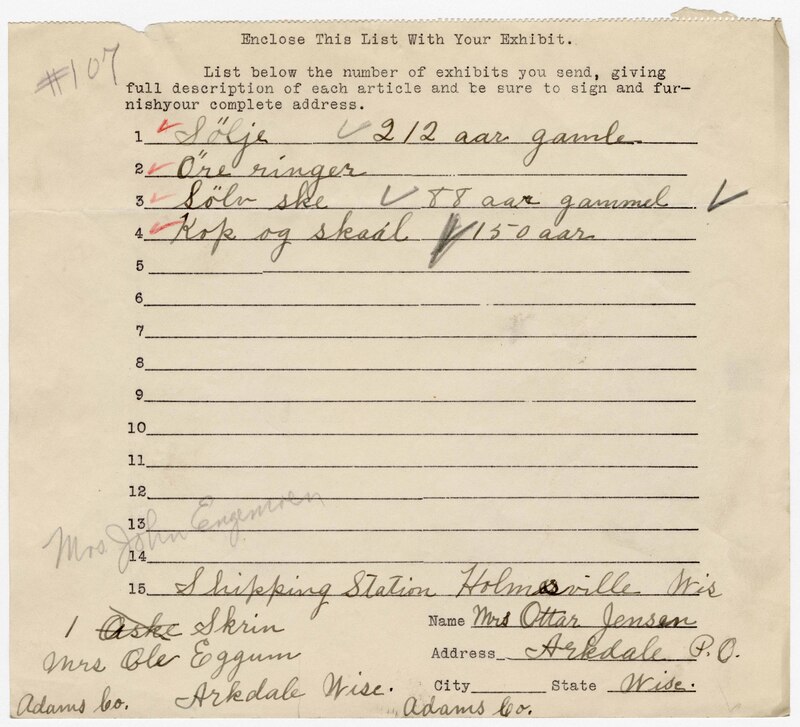 Enclose This List With Your Exhibit.
#107
List below the number of exhibits you send, giving
full description of each article and be sure to sign and fur-
nishyour complete address.
1 Sölje 212 aar gamle
2 Öre ringer
3 Sölv ske 88 aar gammel
4 Kop og skaal 150 aar
5
6
7
8
9
10
11
12
13
Mrs. John
14
15 Shipping Station Holmesville Wis
1 Aske Skrin
Mrs Ole Eggum
Arkdale Wisc.
Adams Co.
Name Mrs Ottar Jensen
Address Arkdale P.O.
City State Wisc.
Adams Co.